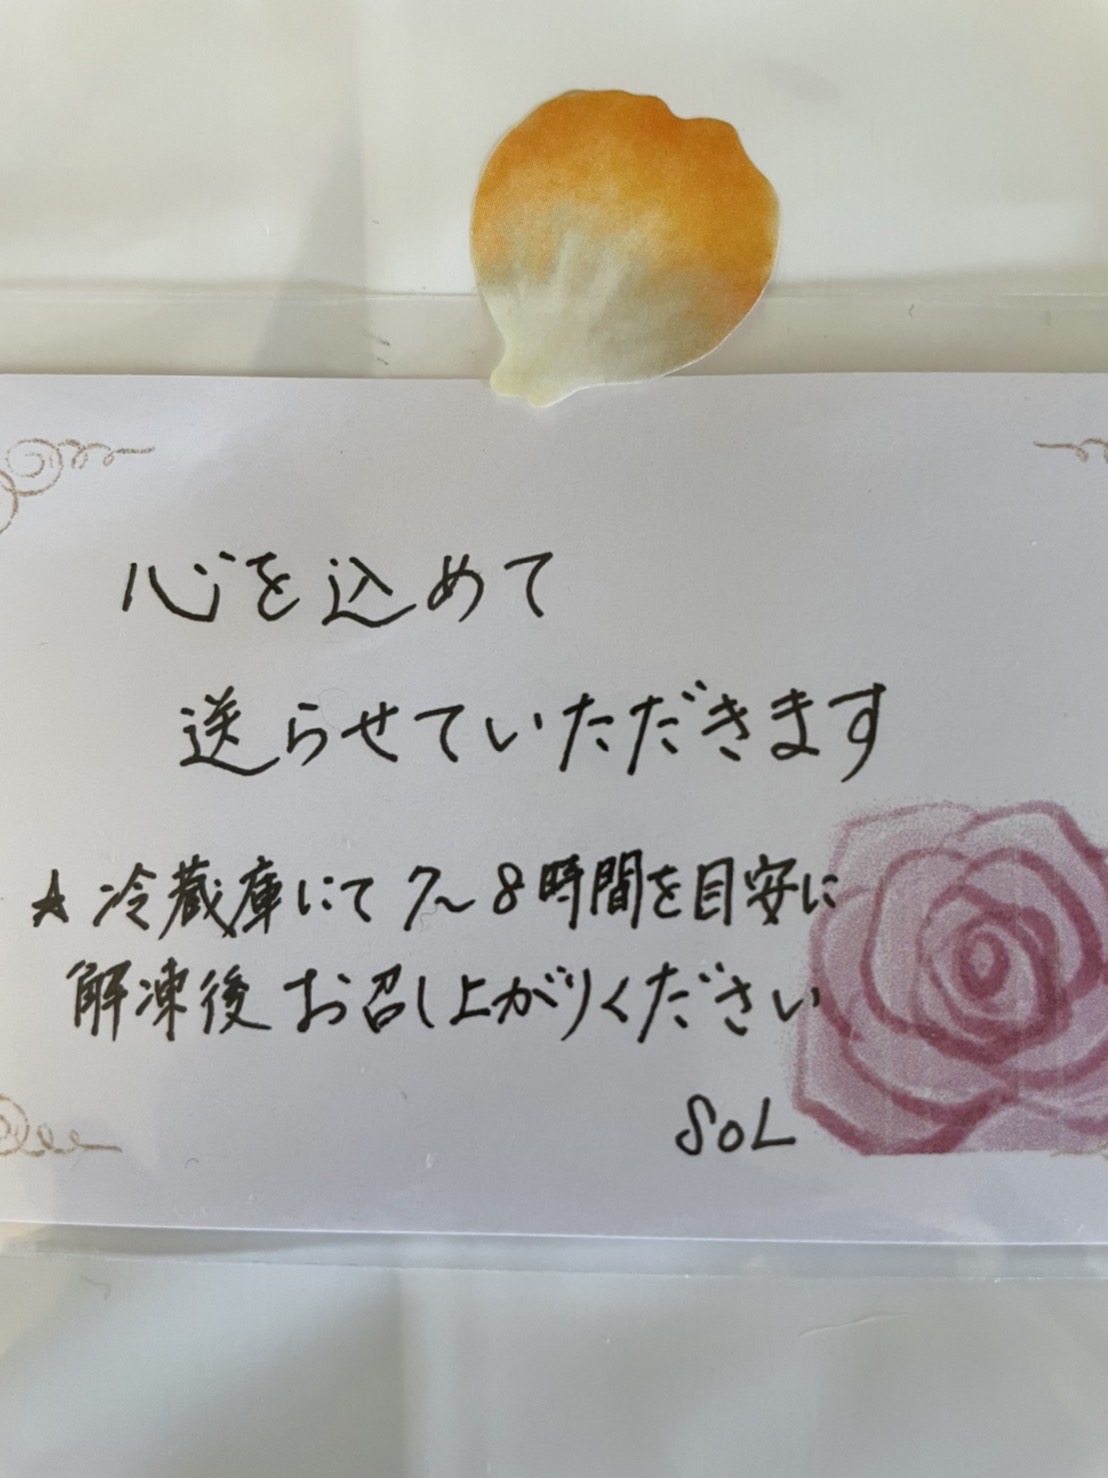 心を込めて
送らせていただきます
★冷蔵庫にて 7〜8時間を目安に
解凍後 お召し上がりください
SOL